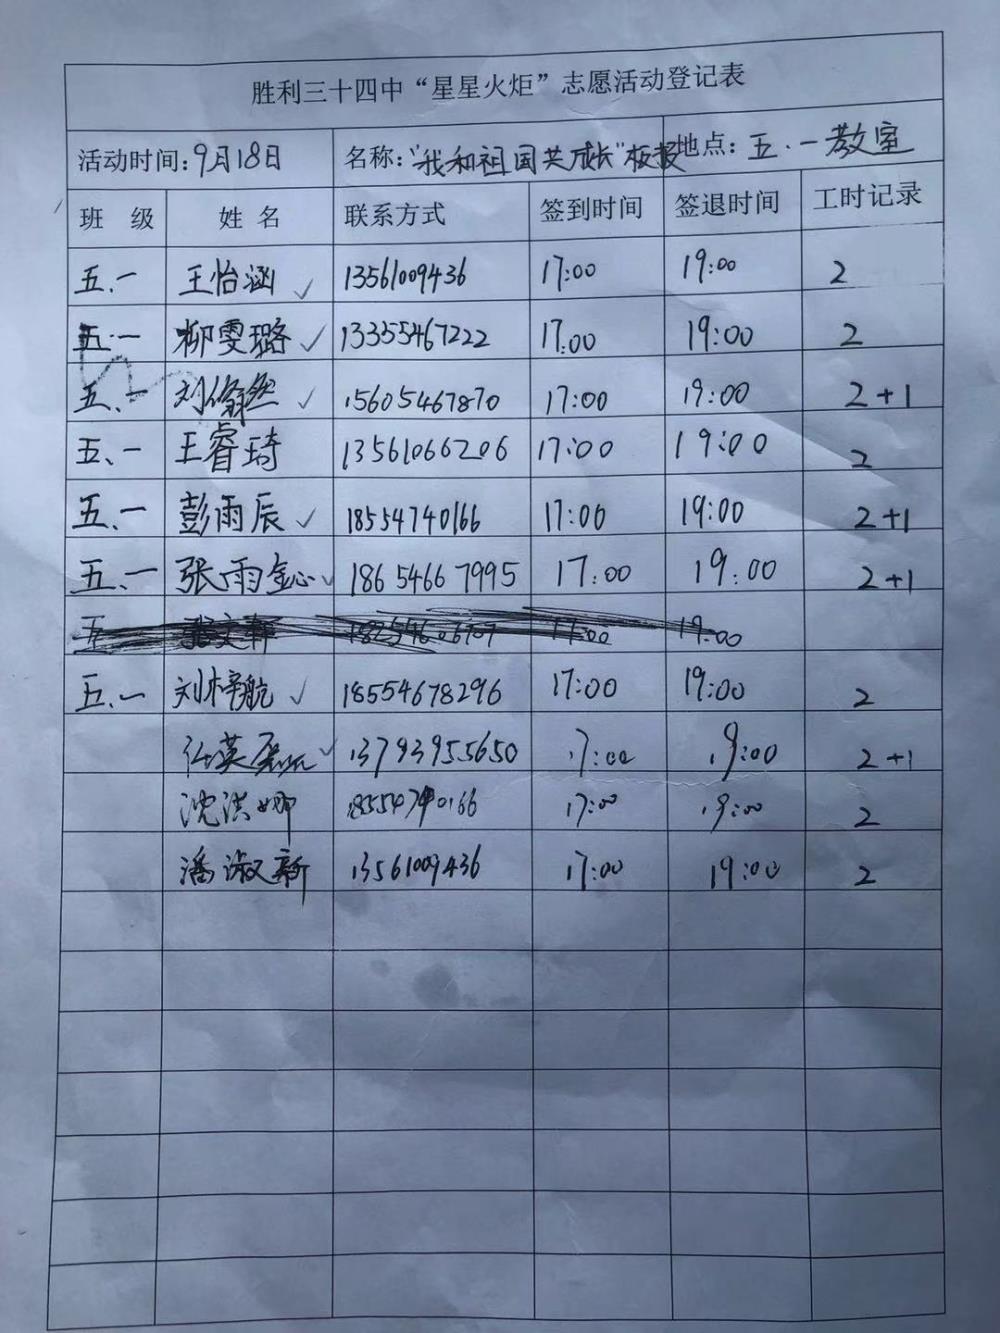 胜利三十四中“星星火炬”志愿活动登记表
活动时间:9月18日 名称:“我和祖国共成长”板报 地点:五.一教室
班 级 姓 名 联系方式 签到时间 签退时间 工时记录
五.一 王怡涵 ✓ 13561009436 17:00 19:00 2
五.一 柳雯璐 ✓ 13355467222 17:00 19:00 2
五.一 刘 然 ✓ 15605467870 17:00 19:00 2+1
五.一 王睿琦 13561066206 17:00 19:00 2
五.一 彭雨辰 ✓ 18554740166 17:00 19:00 2+1
五.一 张雨 ✓ 18654667995 17:00 19:00 2+1
五 张文 17:00 19:00
五.一 刘梓航 ✓ 18554678296 17:00 19:00 2
任英 ✓ 13793955650 17:00 19:00 2+1
沈洪娜 18554740166 17:00 19:00 2
潘淑新 13561009436 17:00 19:00 2